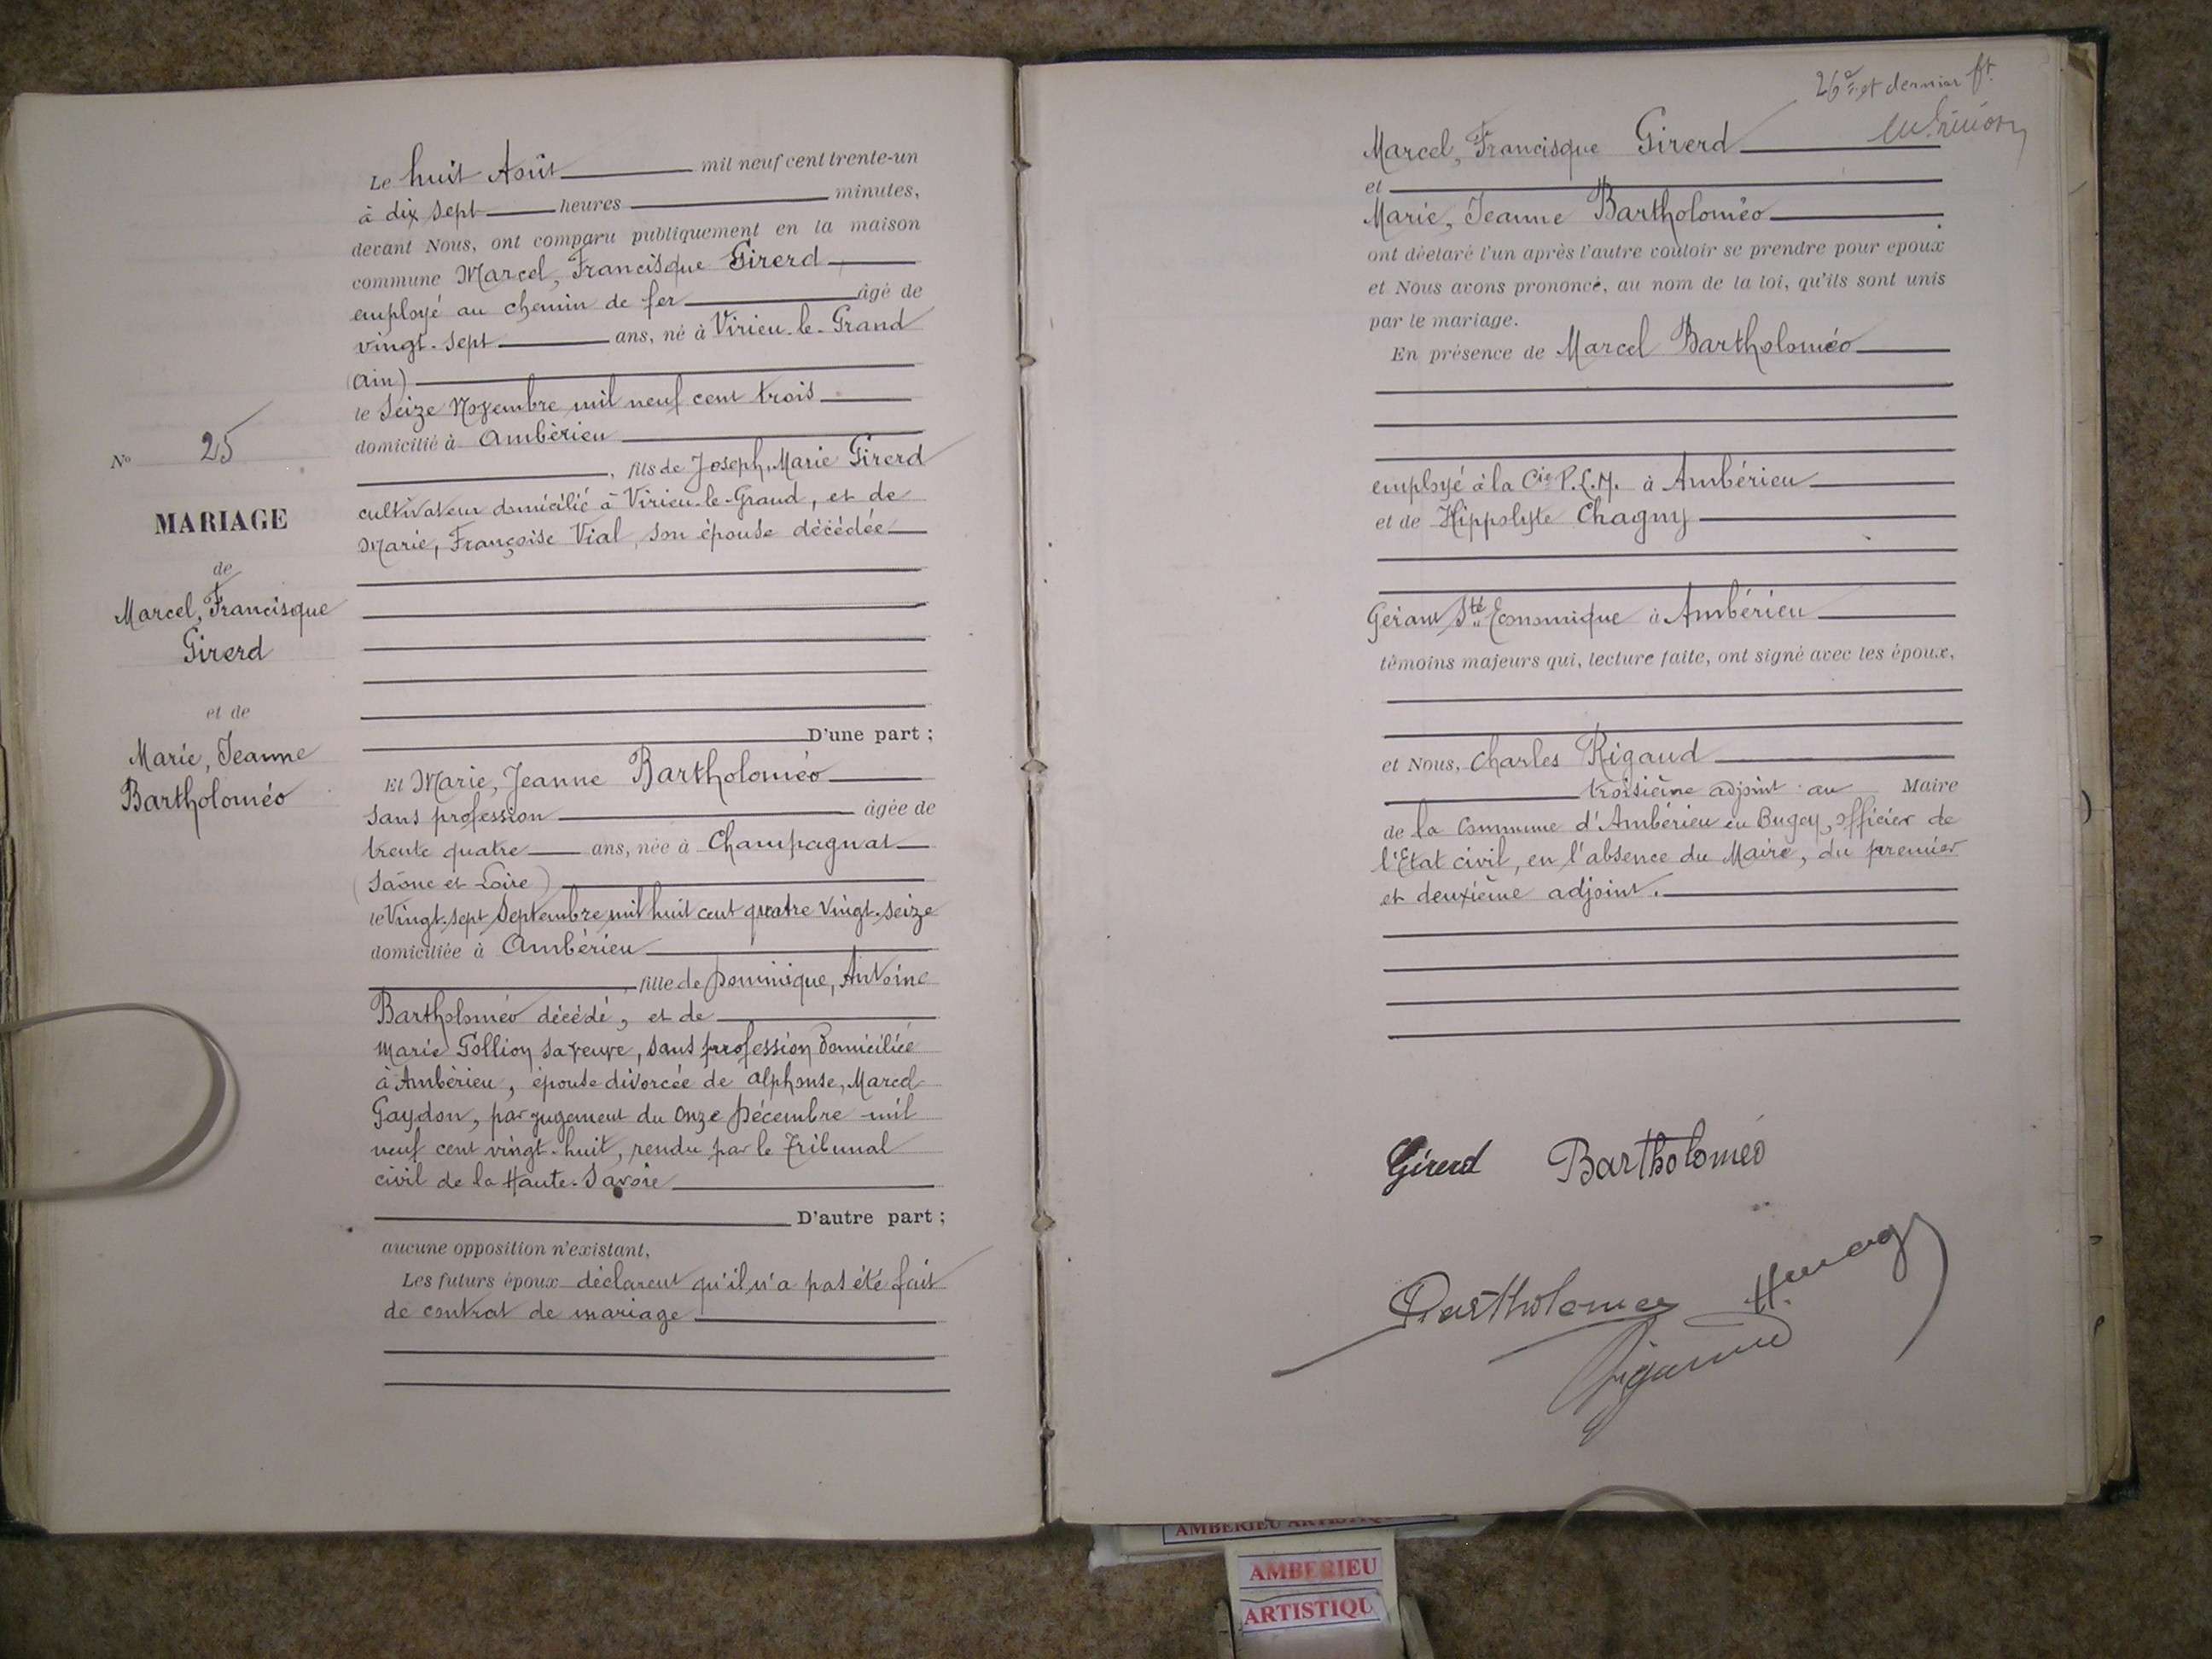 N° 25
MARIAGE
de
Marcel, Francisque
Girerd
et de
Marie, Jeanne
Bartholoméo
Le huit Août mil neuf cent trente-un
à dix sept heures minutes,
devant Nous, ont comparu publiquement en la maison
commune Marcel, Francisque Girerd
employé au chemin de fer âgé de
vingt-sept ans, né à Virieu-le-Grand
(Ain)
le Seize Novembre mil neuf cent trois
domicilié à Ambérieu
, fils de Joseph, Marie Girerd
cultivateur domicilié à Virieu-le-Grand, et de
Marie, Françoise Vial, son épouse décédée
D'une part ;
Et Marie, Jeanne Bartholoméo
sans profession âgée de
trente quatre ans, née à Champagnat
(Saône et Loire)
le Vingt-sept Septembre mil huit cent quatre vingt-seize
domiciliée à Ambérieu
, fille de Dominique, Antoine
Bartholoméo décédé, et de
Marie Gollion sa veuve, sans profession domiciliée
à Ambérieu, épouse divorcée de Alphonse, Marcel
Gaydon, par jugement du onze Décembre mil
neuf cent vingt-huit, rendu par le Tribunal
civil de la Haute-Savoie
D'autre part ;
aucune opposition n'existant,
Les futurs époux déclarent qu'il n'a pas été fait
de contrat de mariage
26e et dernier ft.
Marcel, Francisque Girerd
et
Marie, Jeanne Bartholoméo
ont déclaré l'un après l'autre vouloir se prendre pour époux
et Nous avons prononcé, au nom de la loi, qu'ils sont unis
par le mariage.
En présence de Marcel Bartholoméo
employé à la Cie P.L.M. à Ambérieu
et de Hippolyte Chagny
Gérant Sté Economique à Ambérieu
témoins majeurs qui, lecture faite, ont signé avec les époux,
et Nous, Charles Rigaud
troisième adjoint au Maire
de la Commune d'Ambérieu en Bugey, officier de
l'Etat civil, en l'absence du Maire, du premier
et deuxième adjoint.
Girerd Bartholoméo
Bartholomeo
Rigaud
AMBERIEU ARTISTIQU
AMBERIEU
ARTISTIQU